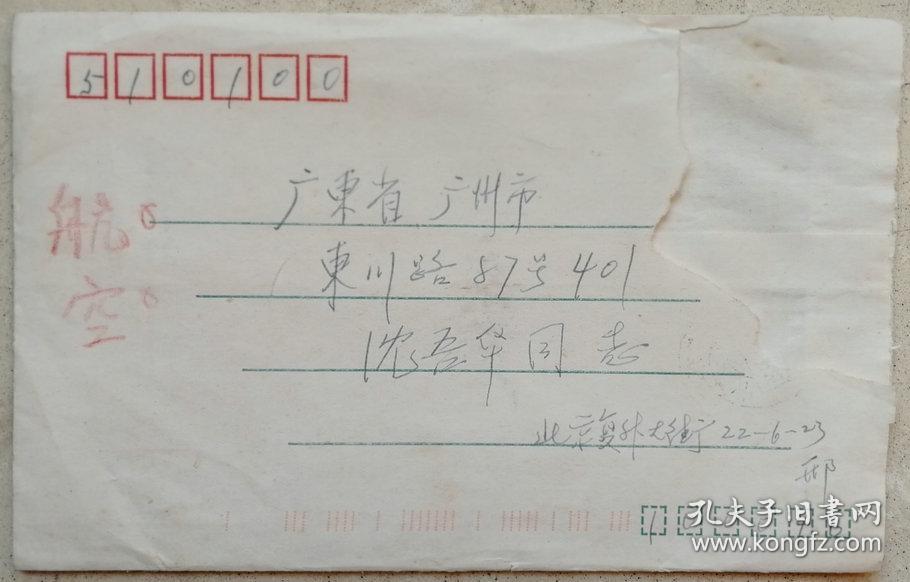 510100
航空
广東省 广州市
東川路87号401
沈吾华同志
北京复外大街22-6-23
邢
孔夫子旧書网
www.kongfz.com